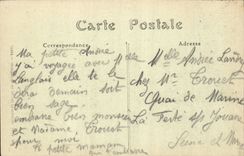 Carte Postale
Correspondance
Adresse
Ma petite Andrée
j'ai voyagé avec Melle
Langlais elle te le
dira demain soit
bien sage
embrasse bien monsieur
et Madame Troust
pour moi
Ta petite maman
Melle Andrée
chez Mr Troust
Quai de Marine
La Ferté s/s Jouarre
Seine et M